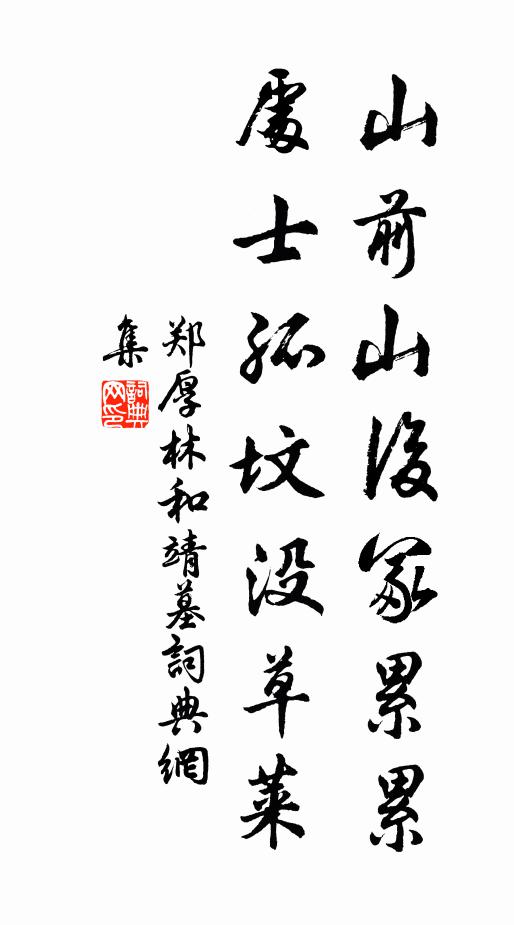 山前山後冢累累
處士孤坟没草萊
郑厚林和靖墓詞典網
集
詞典
网印